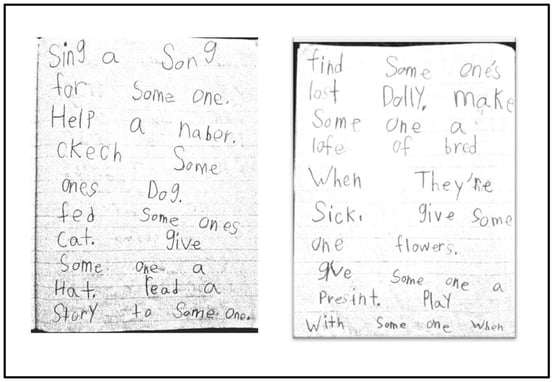 Sing a Song
for Some one.
Help a naber.
ckech Some
ones Dog.
fed Some ones
Cat. give
Some one a
Hat. read a
Story to Some one.
find Some one's
lost Dolly. make
Some one a
lofe of bred
When They're
Sick. give Some
one flowers.
give Some one a
Presint. Play
With Some one When